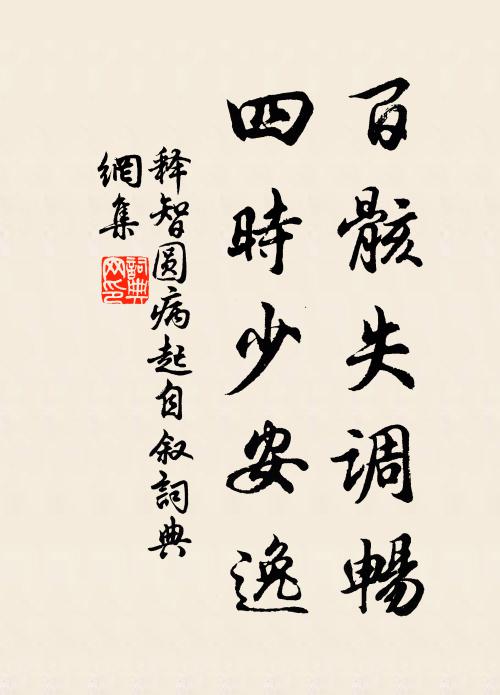 百骸失调暢
四時少安逸
释智圆病起自叙詞典
網集
詞典
网印